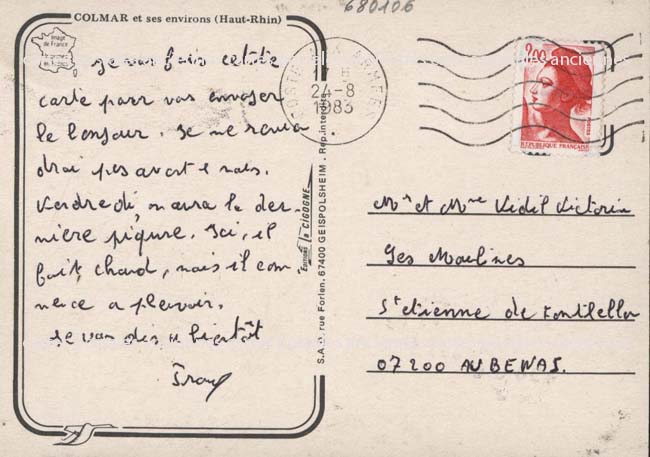 COLMAR et ses environs (Haut-Rhin)
680106
Image
de France
je vous fais cette
carte pour vous envoyer
le bonjour. Je ne revien
drai pas avant le mois.
Vendredi on aura la der-
nière piqure. Ici, il
fait chaud, mais il com-
mence a pleuvoir.
Je vous dis a bientôt
Editions la CIGOGNE
S.A. 1, rue Forlen, 67400 GEISPOLSHEIM. Rep. interdite
POSTE ARMEES
24-8
1983
anciennes
2,00
REPUBLIQUE FRANÇAISE
Mr et Mme Vidil Victorin
Les Moulines
St etienne de Fontbellon
07200 AUBENAS.